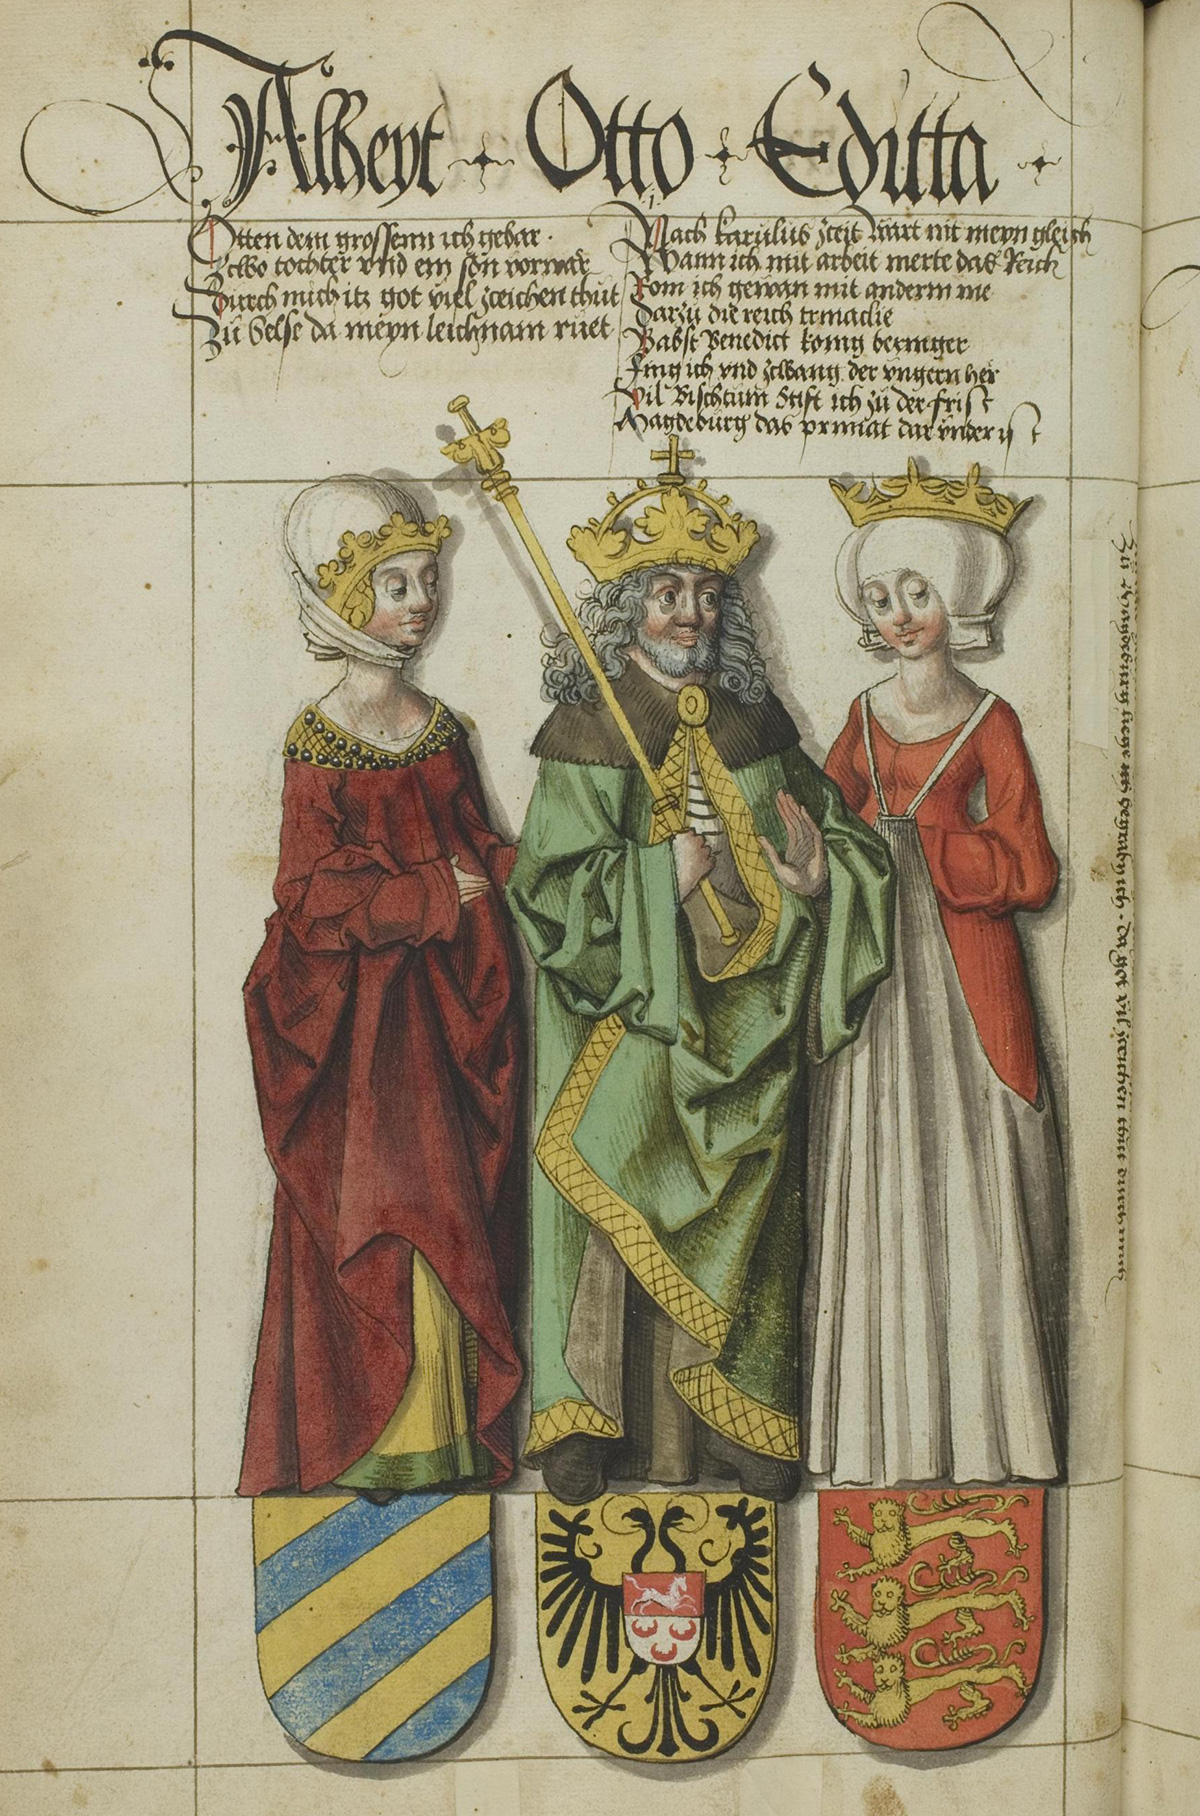 Alheyt · Otto · Editta ·
Otten dem grossenn ich gebar ·
Zcwo tochter vnd ein son vorwar
Durch mich itz got viel zceichen thut
Zu Selse da meyn leichnam ruet
Nach karulus zceit wart nit meyn gleich
Wann ich mit arbeit merte das Reich
Rom ich gewan mit anderm me
Darzu die reich
Babst Benedict konig beringer
Fing ich vnd zcwang der vngern her
Vil Bischtum Stift ich zu der frist
Magdeburg das primat dar vnder ist
Zu Magdeburg lige ich begraben · da got vil zceichen thut durch mich